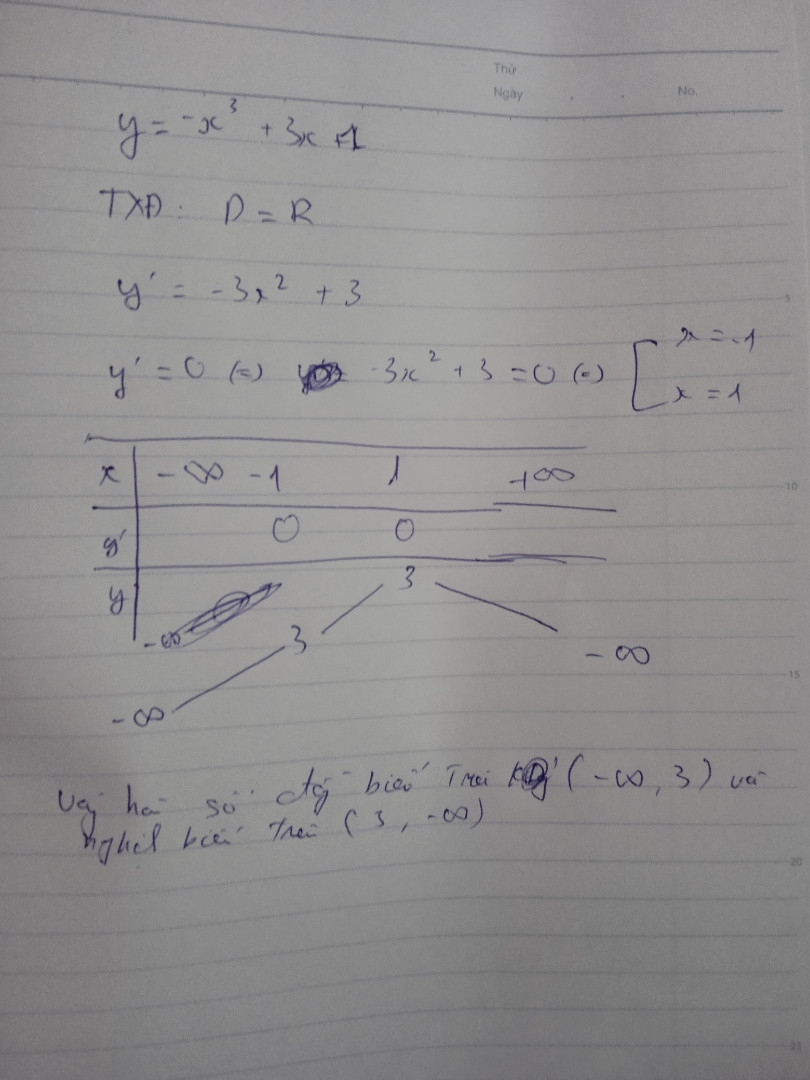 Thứ
Ngày . . No.
y = -x³ + 3x + 1
TXĐ: D = R
y' = -3x² + 3
5
y' = 0 (=) -3x² + 3 = 0 (=) [ x = -1
x = 1
x -∞ -1 1 +∞
10
y' 0 0
y 3
-∞ 3 -∞
15
-∞
Vậy hà số đồg biế Trê (-∞, 3) và
nghịch biế Trê (3, -∞)
20
25